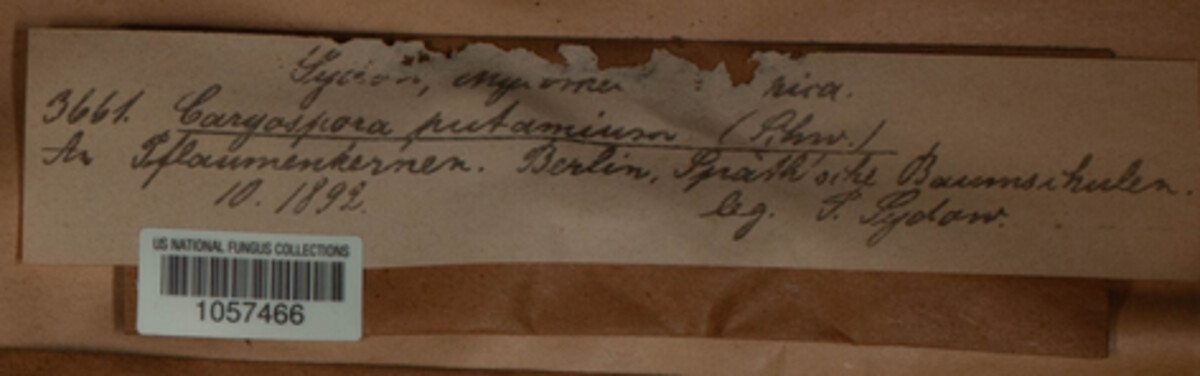 Sydow,
3661. Caryospora putaminum (Schw.)
An Pflaumenkernen. Berlin, Späth'sche Baumschulen.
10. 1892. leg. P. Sydow.
US NATIONAL FUNGUS COLLECTIONS
1057466